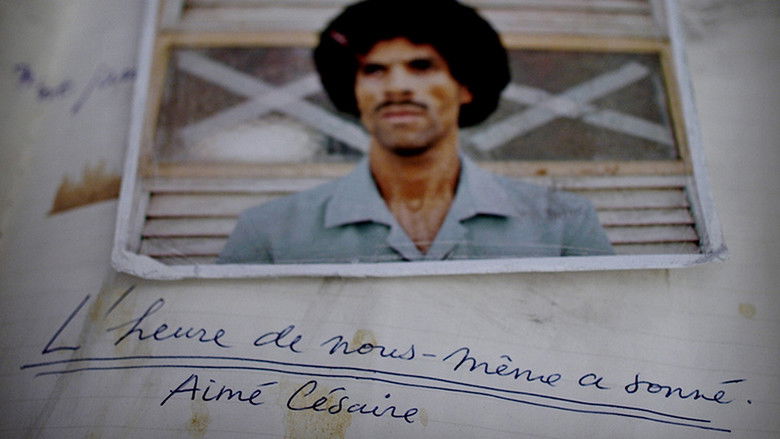 L'heure de nous-même a sonné.
Aimé Césaire